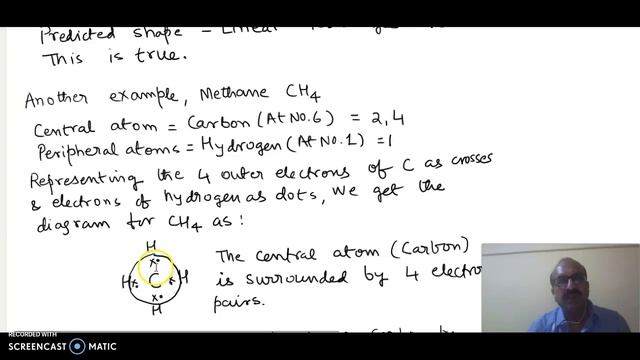 Predicted shape – Linear
This is true.
Another example, Methane CH4
Central atom = Carbon (At No. 6) = 2,4
Peripheral atoms = Hydrogen (At No. 1) = 1
Representing the 4 outer electrons of C as crosses
& electrons of hydrogen as dots, we get the
diagram for CH4 as:
H
H C H
H
The central atom (Carbon)
is surrounded by 4 electro
pairs.
RECORDED WITH
SCREENCAST MATIC